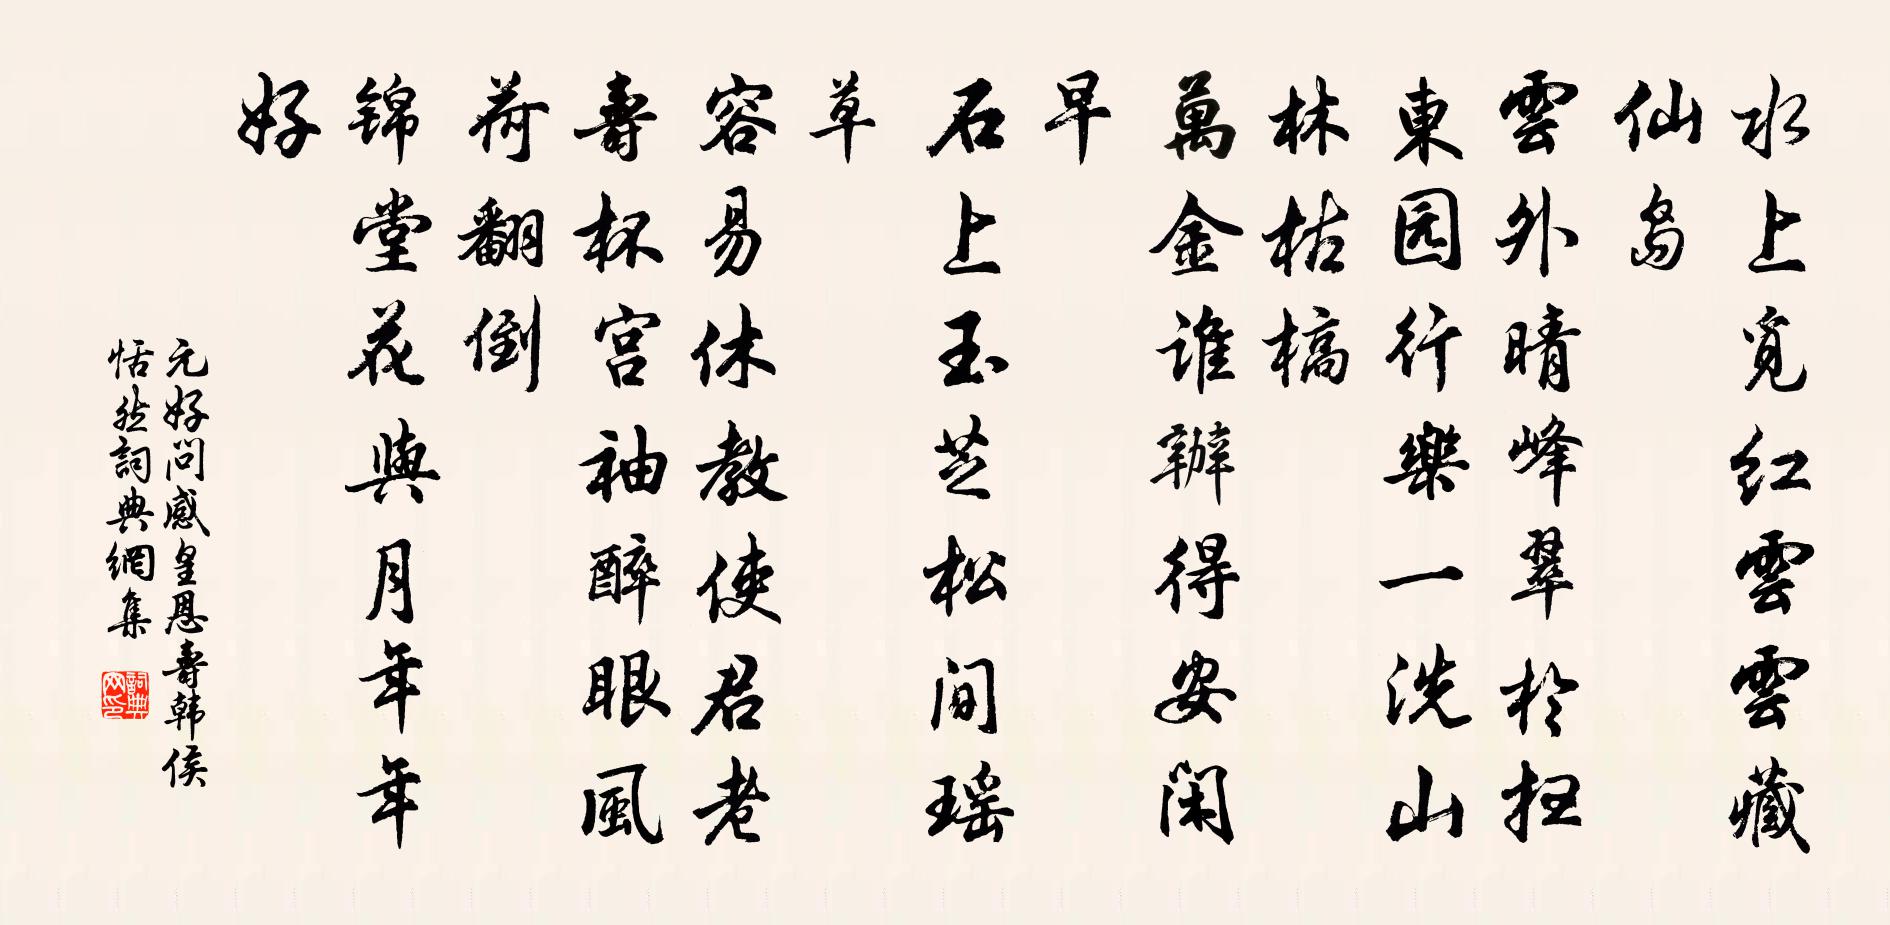 水上覓红雲雲藏
仙島
雲外晴峰翠於扫
東园行樂一洗山
林枯槁
萬金谁辦得安閑
早
石上玉芝松间瑶
草
容易休教使君老
壽杯宫袖醉眼風
荷翻倒
锦堂花與月年年
好
元好问感皇恩壽韩侯
恬然詞典網集
詞典网印